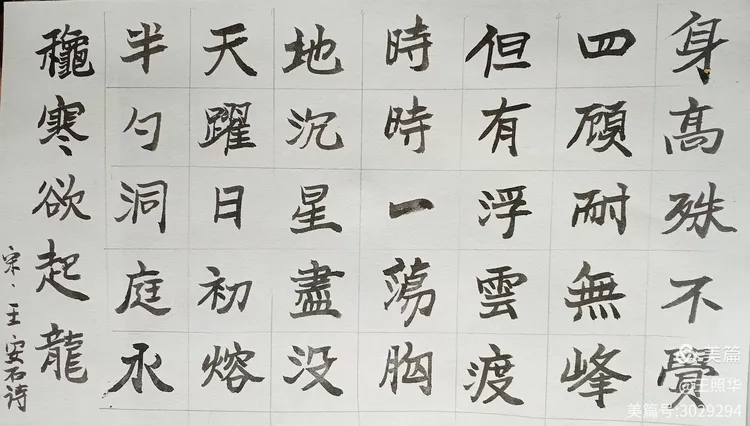 身高殊不覺
四顧耐無峰
但有浮雲渡
時時一蕩胸
地沉星盡没
天躍日初熔
半勺洞庭水
穐寒欲起龍
宋、王安石诗
美篇
@王照华
美篇号:3029294